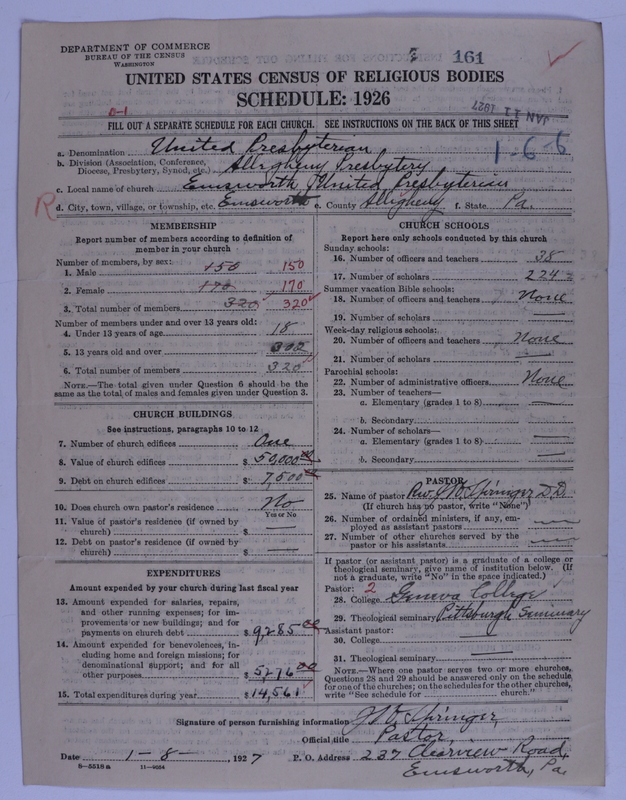 DEPARTMENT OF COMMERCE
BUREAU OF THE CENSUS
WASHINGTON
161
UNITED STATES CENSUS OF RELIGIOUS BODIES
SCHEDULE: 1926
JAN 11 1927
FILL OUT A SEPARATE SCHEDULE FOR EACH CHURCH. SEE INSTRUCTIONS ON THE BACK OF THIS SHEET
1-6-6
a. Denomination United Presbyterian
b. Division (Association, Conference, Diocese, Presbytery, Synod, etc.) Allegheny Presbytery
c. Local name of church Emsworth United Presbyterian
R
d. City, town, village, or township, etc. Emsworth e. County Allegheny f. State Pa.
MEMBERSHIP
Report number of members according to definition of
member in your church
Number of members, by sex:
1. Male 150 150
2. Female 170 170
3. Total number of members 320 320
Number of members under and over 13 years old:
4. Under 13 years of age 18
5. 13 years old and over 302
6. Total number of members 320
NOTE.—The total given under Question 6 should be
same as the total of males and females given under Question 3.
CHURCH BUILDINGS
See instructions, paragraphs 10 to 12
7. Number of church edifices One
8. Value of church edifices $ 50,000 00
9. Debt on church edifices $ 7,500 00
10. Does church own pastor's residence? No
Yes or No
11. Value of pastor's residence (if owned by
church) $
12. Debt on pastor's residence (if owned by
church) $ —
EXPENDITURES
Amount expended by your church during last fiscal year
13. Amount expended for salaries, repairs,
and other running expenses; for im-
provements or new buildings; and for
payments on church debt $ 9,285 00
14. Amount expended for benevolences, in-
cluding home and foreign missions; for
denominational support; and for all
other purposes $ 5276 00
15. Total expenditures during year $ 14,561
CHURCH SCHOOLS
Report here only schools conducted by this church
Sunday schools:
16. Number of officers and teachers 38
17. Number of scholars 224
Summer vacation Bible schools:
18. Number of officers and teachers None
19. Number of scholars —
Week-day religious schools:
20. Number of officers and teachers None
21. Number of scholars —
Parochial schools:
22. Number of administrative officers None
23. Number of teachers—
a. Elementary (grades 1 to 8) —
b. Secondary —
24. Number of scholars—
a. Elementary (grades 1 to 8) —
b. Secondary —
PASTOR
25. Name of pastor Rev. Springer D.D.
(If church has no pastor, write "None")
26. Number of ordained ministers, if any, em-
ployed as assistant pastors —
27. Number of other churches served by the
pastor or his assistants —
If pastor (or assistant pastor) is a graduate of a college or
theological seminary, give name of institution below. (If
not a graduate, write "No" in the space indicated.)
Pastor: 2
28. College Geneva College
29. Theological seminary Pittsburgh Seminary
Assistant pastor:
30. College —
31. Theological seminary —
NOTE.—Where one pastor serves two or more churches,
Questions 28 and 29 should be answered only on the schedule
for one of the churches; on the schedules for the other churches,
write "See schedule for church."
Signature of person furnishing information Springer
Official title Pastor
Date 1-8- , 1927 P. O. Address 237 Clearview Road,
Emsworth, Pa.
8-5518a 11-9054